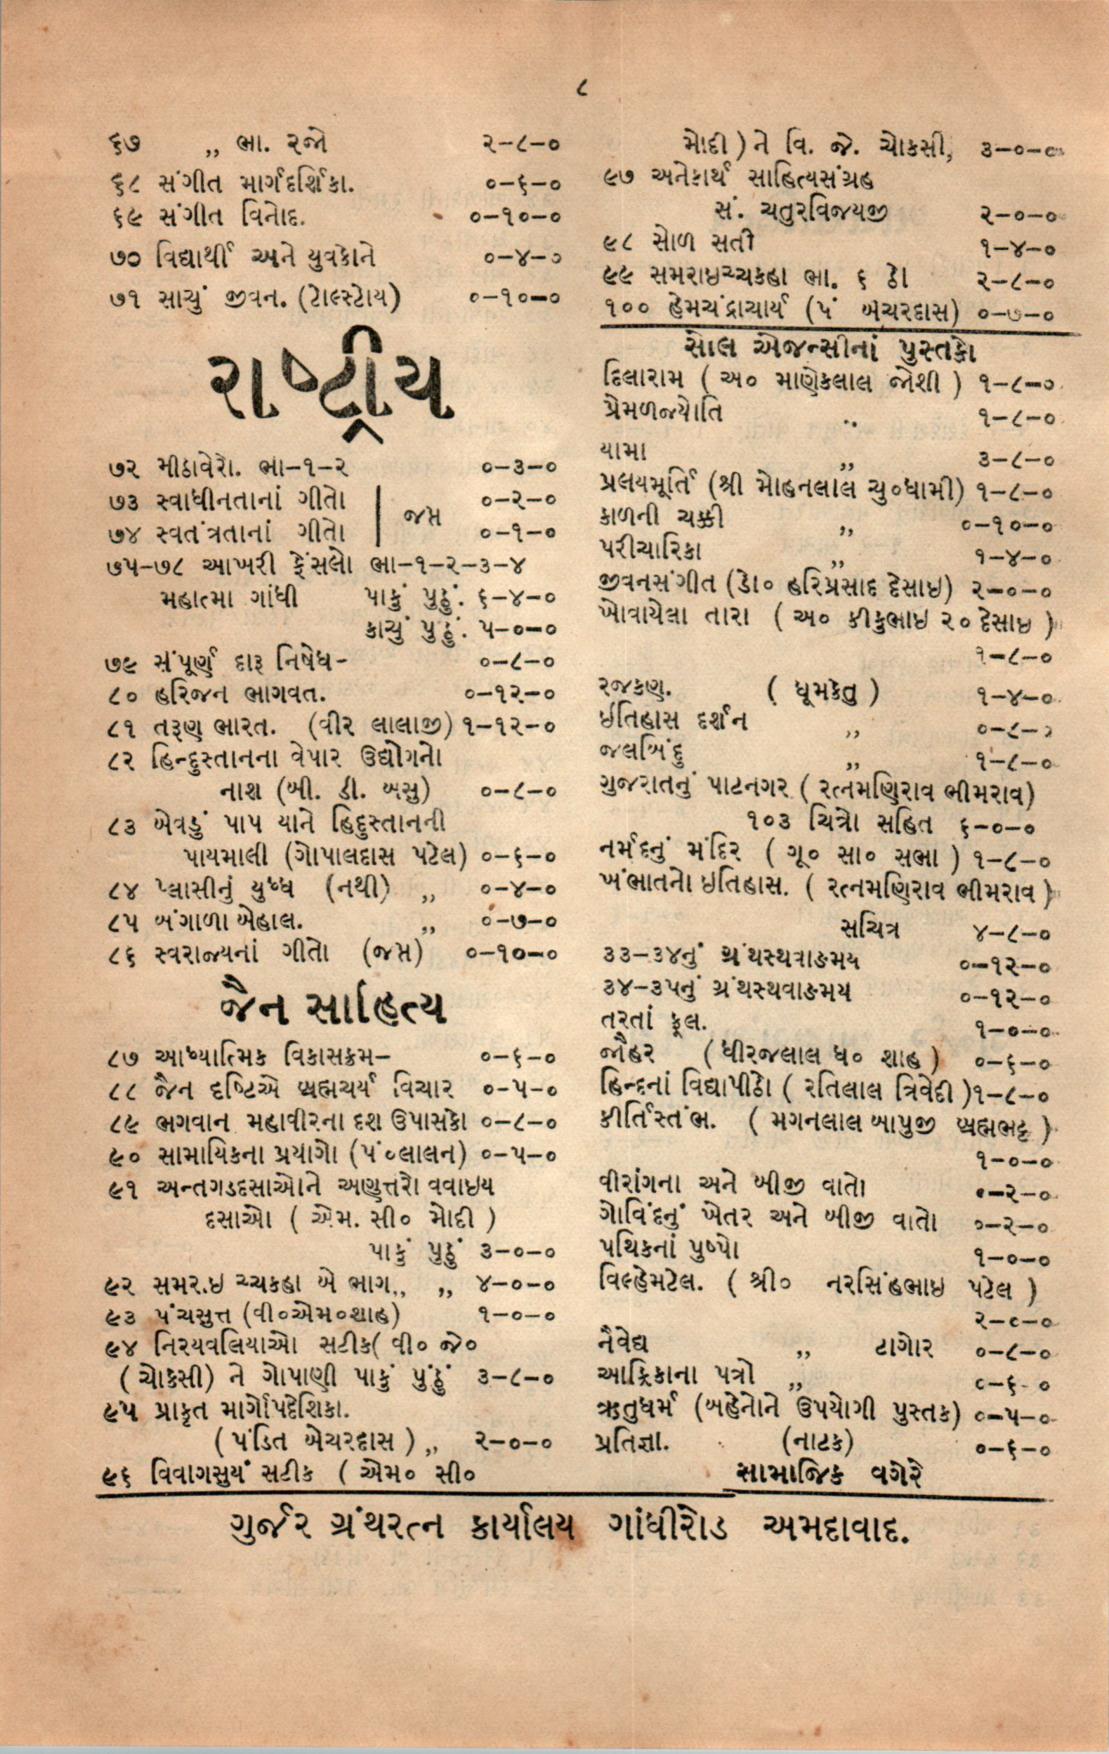 ૮
૬૭ ,, ભા. ૨જો ૨-૮-૦
૬૮ સંગીત માર્ગદર્શિકા. ૦-૬-૦
૬૯ સંગીત વિનોદ. ૦-૧૦-૦
૭૦ વિદ્યાર્થી અને યુવકોને ૦-૪-૦
૭૧ સાચું જીવન. (ટોલ્સ્ટોય) ૦-૧૦-૦
રાષ્ટ્રીય
૭૨ મીઠાવેરો. ભા-૧-૨ ૦-૩-૦
૭૩ સ્વાધીનતાનાં ગીતો ૦-૨-૦
જપ્ત
૭૪ સ્વતંત્રતાનાં ગીતો ૦-૧-૦
૭૫-૭૮ આખરી ફેંસલો ભા-૧-૨-૩-૪
મહાત્મા ગાંધી પાકું પુઠ્ઠું. ૬-૪-૦
કાચું પુઠ્ઠું. ૫-૦-૦
૭૯ સંપૂર્ણ દારૂ નિષેધ- ૦-૮-૦
૮૦ હરિજન ભાગવત. ૦-૧૨-૦
૮૧ તરૂણ ભારત. (વીર લાલાજી) ૧-૧૨-૦
૮૨ હિન્દુસ્તાનના વેપાર ઉદ્યોગનો
નાશ (બી. ડી. બસુ) ૦-૮-૦
૮૩ બેવડું પાપ યાને હિંદુસ્તાનની
પાયમાલી (ગોપાલદાસ પટેલ) ૦-૬-૦
૮૪ પ્લાસીનું યુધ્ધ (નથી) ,, ૦-૪-૦
૮૫ બંગાળા બેહાલ. ,, ૦-૭-૦
૮૬ સ્વરાજ્યનાં ગીતો (જપ્ત) ૦-૧૦-૦
જૈન સાહિત્ય
૮૭ આધ્યાત્મિક વિકાસક્રમ- ૦-૬-૦
૮૮ જૈન દૃષ્ટિએ બ્રહ્મચર્ય વિચાર ૦-૫-૦
૮૯ ભગવાન મહાવીરના દશ ઉપાસકો ૦-૮-૦
૯૦ સામાયિકના પ્રયાગો (પં૦લાલન) ૦-૫-૦
૯૧ અન્તગડદસાઓને અણુત્તરો વવાઇય
દસાઓ ( એમ. સી૦ મોદી )
પાકું પુઠ્ઠું ૩-૦-૦
૯૨ સમર.ઇ ચ્ચકહા બે ભાગ,, ,, ૪-૦-૦
૯૩ પંચસુત્ત (વી૦એમ૦શાહ) ૧-૦-૦
૯૪ નિરયવલિયાઓ સટીક( વી૦ જે૦
(ચોકસી) ને ગોપાણી પાકું પુંઠ્ઠું ૩-૮-૦
૯૫ પ્રાકૃત માર્ગોપદેશિકા.
( પંડિત બેચરદાસ ) ,, ૨-૦-૦
૯૬ વિવાગસુયં સટીક ( એમ૦ સી૦
મોદી ) ને વિ. જે. ચોકસી, ૩-૦-૦
૯૭ અનેકાર્થ સાહિત્યસંગ્રહ
સં. ચતુરવિજયજી ૨-૦-૦
૯૮ સોળ સતી ૧-૪-૦
૯૯ સમરાઇચ્ચકહા ભા. ૬ ઠો ૨-૮-૦
૧૦૦ હેમચંદ્રાચાર્ય (પં બેચરદાસ) ૦-૭-૦
સોલ એજન્સીનાં પુસ્તકો
દિલારામ ( અ૦ માણેકલાલ જોશી ) ૧-૮-૦
પ્રેમળજ્યોતિ ,, ૧-૮-૦
યામા ,, ૩-૮-૦
પ્રલયમૂર્તિ (શ્રી મોહનલાલ ચુ૦ધામી) ૧-૮-૦
કાળની ચક્કી ,, ૦-૧૦-૦
પરીચારિકા ,, ૧-૪-૦
જીવનસંગીત (ડો૦ હરિપ્રસાદ દેસાઇ) ૨-૦-૦
ખોવાયેલા તારા ( અ૦ કીકુભાઇ ર૦ દેસાઇ )
૧-૮-૦
રજકણ. ( ધૂમકેતુ ) ૧-૪-૦
ઇતિહાસ દર્શન ,, ૦-૮-૦
જલબિંદુ ,, ૧-૮-૦
ગુજરાતનું પાટનગર ( રત્નમણિરાવ ભીમરાવ)
૧૦૩ ચિત્રો સહિત ૬-૦-૦
નર્મદનું મંદિર ( ગૂ૦ સા૦ સભા ) ૧-૮-૦
ખંભાતનો ઇતિહાસ. ( રત્નમણિરાવ ભીમરાવ )
સચિત્ર ૪-૮-૦
૩૩-૩૪નું ગ્રંથસ્થવાઙમય ૦-૧૨-૦
૩૪-૩૫નું ગ્રંથસ્થવાઙમય ૦-૧૨-૦
તરતાં ફૂલ. ૧-૦-૦
જૌહર ( ધીરજલાલ ધ૦ શાહ ) ૦-૬-૦
હિન્દનાં વિદ્યાપીઠો ( રતિલાલ ત્રિવેદી )૧-૮-૦
કીર્તિસ્તંભ. ( મગનલાલ બાપુજી બ્રહ્મભટ્ટ )
૧-૦-૦
વીરાંગના અને બીજી વાતો ૦-૨-૦
ગોવિંદનું ખેતર અને બીજી વાતો ૦-૨-૦
પથિકનાં પુષ્પો ૧-૦-૦
વિલ્હેમટેલ. ( શ્રી૦ નરસિંહભાઇ પટેલ )
૨-૦-૦
નૈવેદ્ય ,, ટાગોર ૦-૮-૦
આફ્રિકાના પત્રો ,, ૦-૬-૦
ઋતુધર્મ (બહેનોને ઉપયોગી પુસ્તક) ૦-૫-૦
પ્રતિજ્ઞા. (નાટક) ૦-૬-૦
સામાજિક વગેરે
ગુર્જર ગ્રંથરત્ન કાર્યાલય ગાંધીરોડ અમદાવાદ.